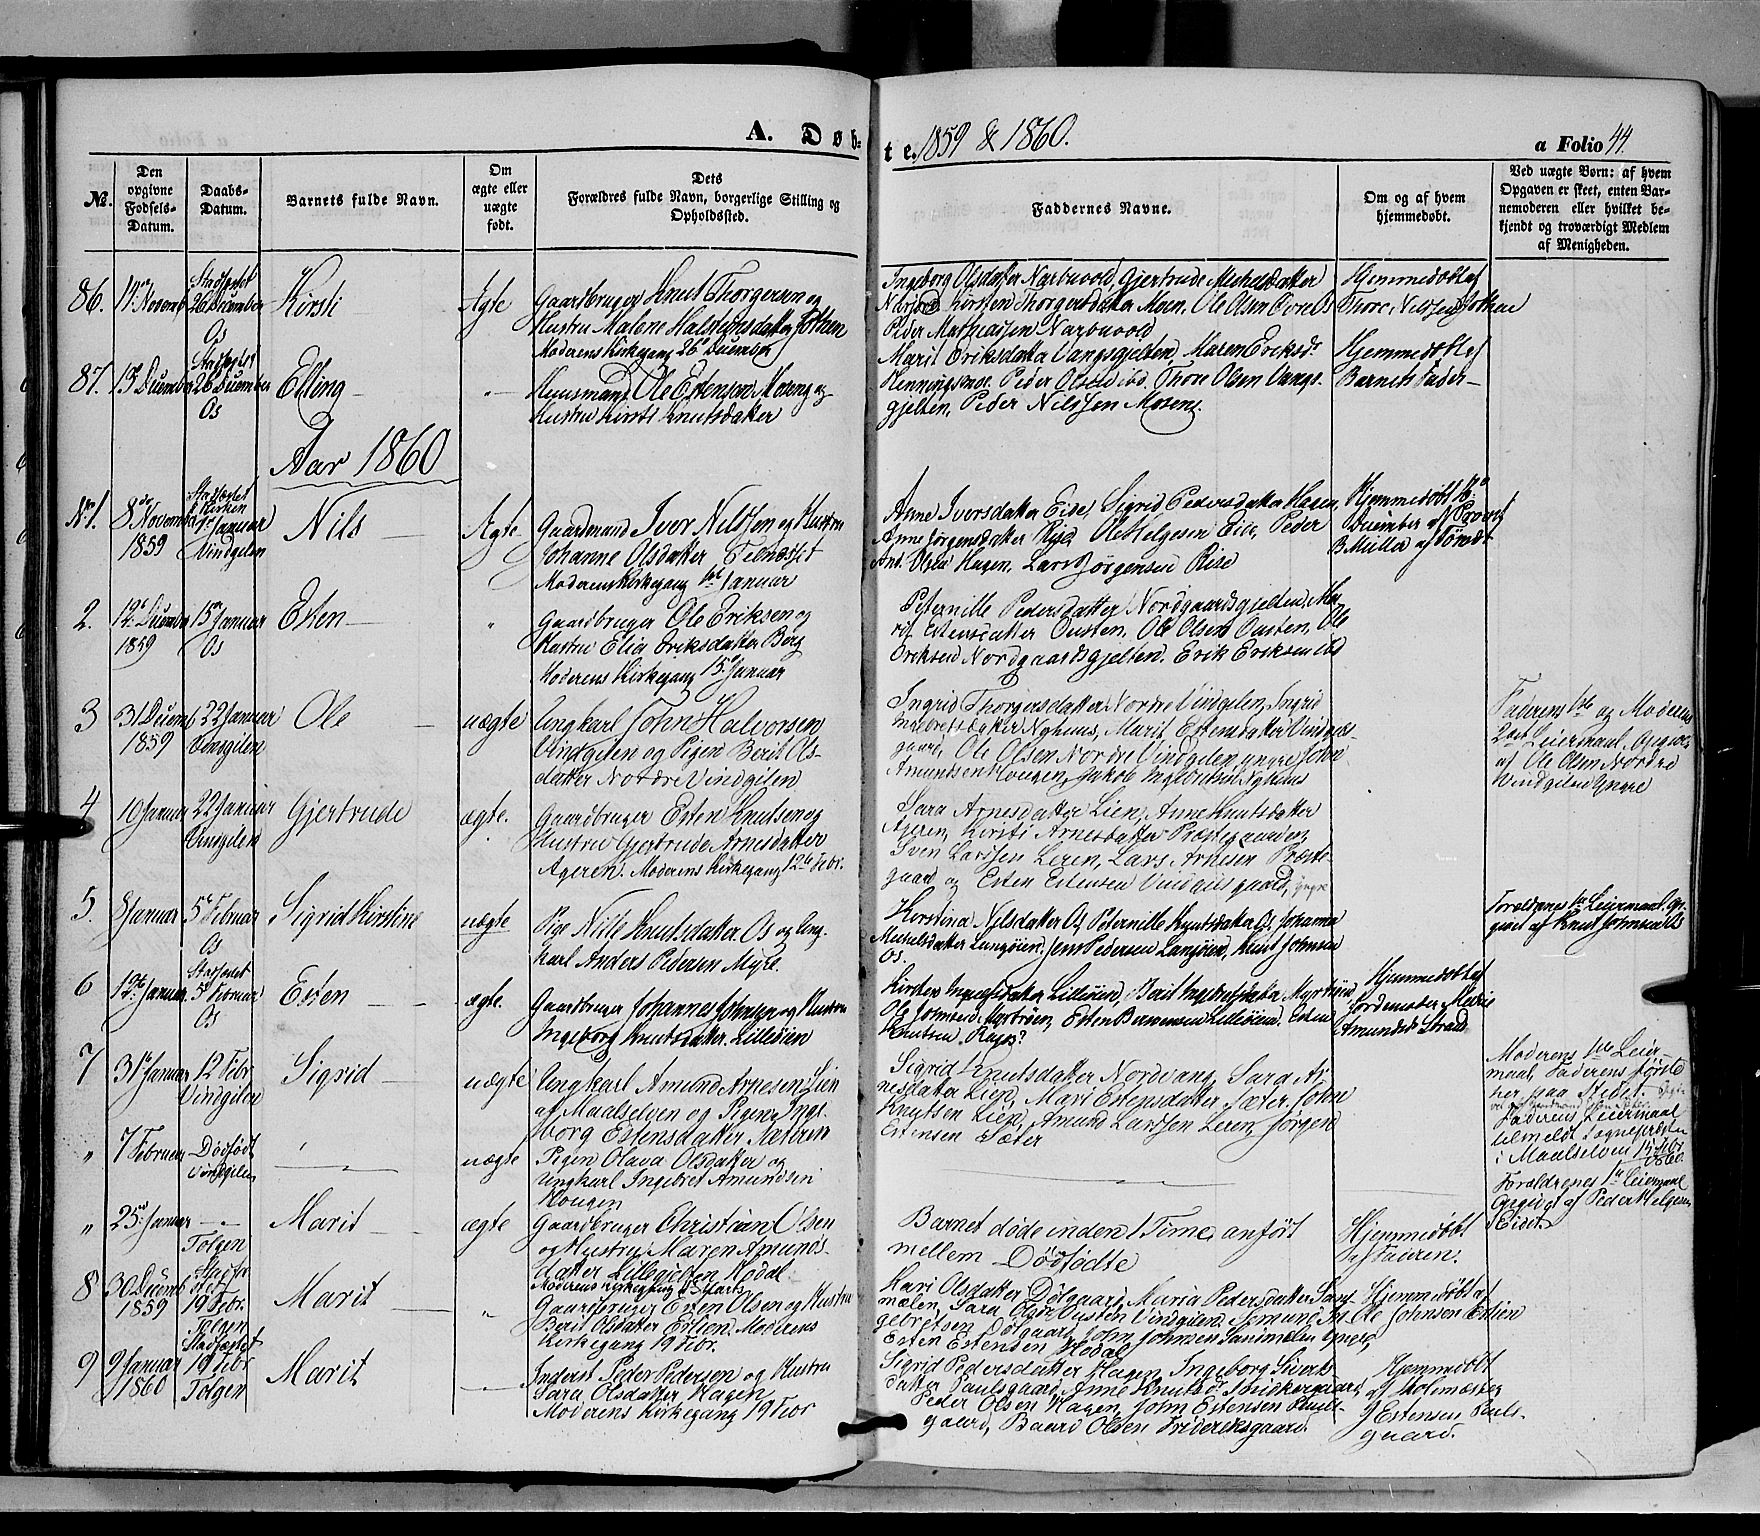 A. Døb-
te. 1859 & 1860.
a Folio 44.
№.
Den opgivne Fødsels-Datum.
Daabs-Datum.
Barnets fulde Navn.
Om ægte eller uægte født.
Dets Forældres fulde Navn, borgerlige Stilling og Opholdssted.
Faddernes Navne.
Om og af hvem hjemmedøbt.
Ved uægte Børn: af hvem Opgaven er skeet, enten Barnemoderen eller hvilket bekjendt og troværdigt Medlem af Menigheden.
86. Novemb 26 Decembr Os
Kirsti
Ægte
Gaardbruger Knut Thorgersen og
Hustru Malene Halstensdatter
Moderens Kirkegang 26 December
Ingeborg Olsdatter Narbuvold, Gjertrude Michelsdatter
Kirsten Thorgersdatter Moen, Ole Olsen
Peder Narbuvold
Hjemmedøbt af
Thore Nilssen
87. 26 Decembr Os
Elling
Huusmand Ole Estensen Moseng og
Hustru Kirsti Knutsdatter
Marit Eriksdatter Vangsgjelten, Maren Eriksd.
Henningsmoe, Peder Olsen ibd. Thore Olsen Vangs-
gjelten, Peder Nilssen Moseng.
Hjemmedøbt af
Barnets Fader
Aar 1860
No 1. 8de Novemb 1859
Januar Vindgilen
Nils
Ægte
Gaardmand Ivor Nilssen og Hustru
Johanne Olsdatter
Moderens Kirkegang 1ste Januar
Anne Ivorsdatter Eide, Sigrid Pedersdatter Hagen,
Anne Jørgensdatter Rise, Ole Helgesen Eide, Peder
Olsen Hagen, Lars Jørgensen Rise
Hjemmedøbt
December af Provst
Müller af Tønset
2. 12te Decembr 1859
15de Januar Os
Esten
"
Gaardbruger Ole Eriksen og
Hustru Elia Eriksdatter Berg
Moderens Kirkegang 15de Januar
Peternille Pedersdatter Nordgaardsgjelten, Ma-
rit Estensdatter Ousten, Ole Olsen Ousten, Ole
Eriksen Nordgaardsgjelten, Erik Eriksen ibd
3 31 Decemb 1859
22 Januar Vindgilen
Ole
uægte
Ungkarl John Halvorsen
Vindgilen og Pigen Berit Ols-
datter Nordre Vindgilen
Ingrid Thorgersdatter Nordre Vindgilen, Ingrid
Ingebretsdatter Nyhuus, Marit Estensdatter Vindgils-
gaard, Ole Olsen Nordre Vindgilen yngre, John
Amundsen Hougen, Jakob Ingebretsen Nyhuus
Faderens 1ste og Moderens
2det Leiermaal. Opgivet
af Ole Olsen Nordre
Vindgilen Yngre
4 10 Januar
22 Januar Vindgilen
Gjertrude
ægte.
Gaardbruger Esten Knutsen og
Hustru Gjertrude Arnesdatter
Ageren. Moderens Kirkegang 12te Febr.
Sara Arnesdatter Lien, Anne Knutsdatter
Ageren, Kirsti Arnesdatter Præstegaarden,
Sven Larssen Leren, Lars Arnesen Præste-
gaard og Esten Estensen Vindgilsgaard, yngre
5. Januar
5te Februar Os
Sigrid Kirstine
uægte
Pige Nille Knutsdatter Os og Ung-
karl Anders Pedersen Myre.
Kirstina Nilsdatter Os, Peternille Knutsdatter Os, Johanna
Michelsdatter Langøien, Jens Pedersen Langøien, Knut Johnsen
Os.
Forældrenes 1ste Leiermaal. Op-
givet af Knut Johnsen Os
6 Januar
5te Februar Os
Esten
ægte.
Gaardbruger Johannes Johnsen og Hustru
Ingeborg Knutsdatter Lilleøien
Kirsten Lilleøien, Berit Ingebretsdatter Myrtrøen
Ole Johnsen Myrtrøen, Esten Lilleøien, Esten
Knutsen
Hjemmedøbt af
Jordemoder Marie
Amundsd. Strand
7 31te Januar
12 Febr Vindgilen
Sigrid
uægte
Ungkarl Amund Arnesen Lien
af Maalselven og Pigen Inge-
borg Estensdatter Sæteren
Sigrid Knutsdatter Nordvang, Sara Ar-
nesdatter Lien, Mari Estensdatter Sæter, John
Knutsen Lien, Amund Larssen Leren, Jørgen
Estensen Sæter
Moderens 1ste Leier-
maal, Faderens første
her paa Stedet.
Faderens Leiermaal
tilmeldt Sognepræsten
i Maalselven 14 Febr 1860.
" 7 Februar
Dødfødt Vindgilen
uægte
Pigen Olava Olsdatter og
Ungkarl Ingebret Amundsen
Hougen
Forældrenes 1ste Leiermaal
Opgivet af Peder Helgesen
Eidet
" 25de Januar
Tolgen
Marit
ægte
Gaardbruger Christian Olsen
og Hustru Maren Amunds-
datter Lillegjelten Hodal
Barnet døde inden 1 Time, anført
mellem Dødfødte
Hjemmedøbt
af Faderen.
8 30 Decemb 1859
19 Febr. Tolgen
Marit
"
Gaardbruger Esten Olsen og Hustru
Berit Olsdatter Estlien. Moderens
Kirkegang 19 Febr.
Mari Olsdatter Dølgaard, Maria Pedersdatter
Sara Olsen Ousten Vindgilen, Amund In-
gebretsen Dølgaard, John Johnsen
Esten Estensen Hodal
Hjemmedøbt af
Ole Johnsen Estlien
9 9 Januar 1860
Stadfæstet 19 Febr Tolgen
Marit
Inderst Peder Pedersen og Hustru
Sara Olsdatter Hagen
Moderens Kirkegang 19 Febr
Sigrid Pedersdatter Hagen, Ingeborg Siverts-
datter Paulsgaard, Anne Knutsd.
Peder Olsen Hagen, John Estensen Pauls-
gaard, Baard Olsen Frideriksgaard.
Hjemmedøbt
af Skolemester
J Estensen Pauls-
gaard.